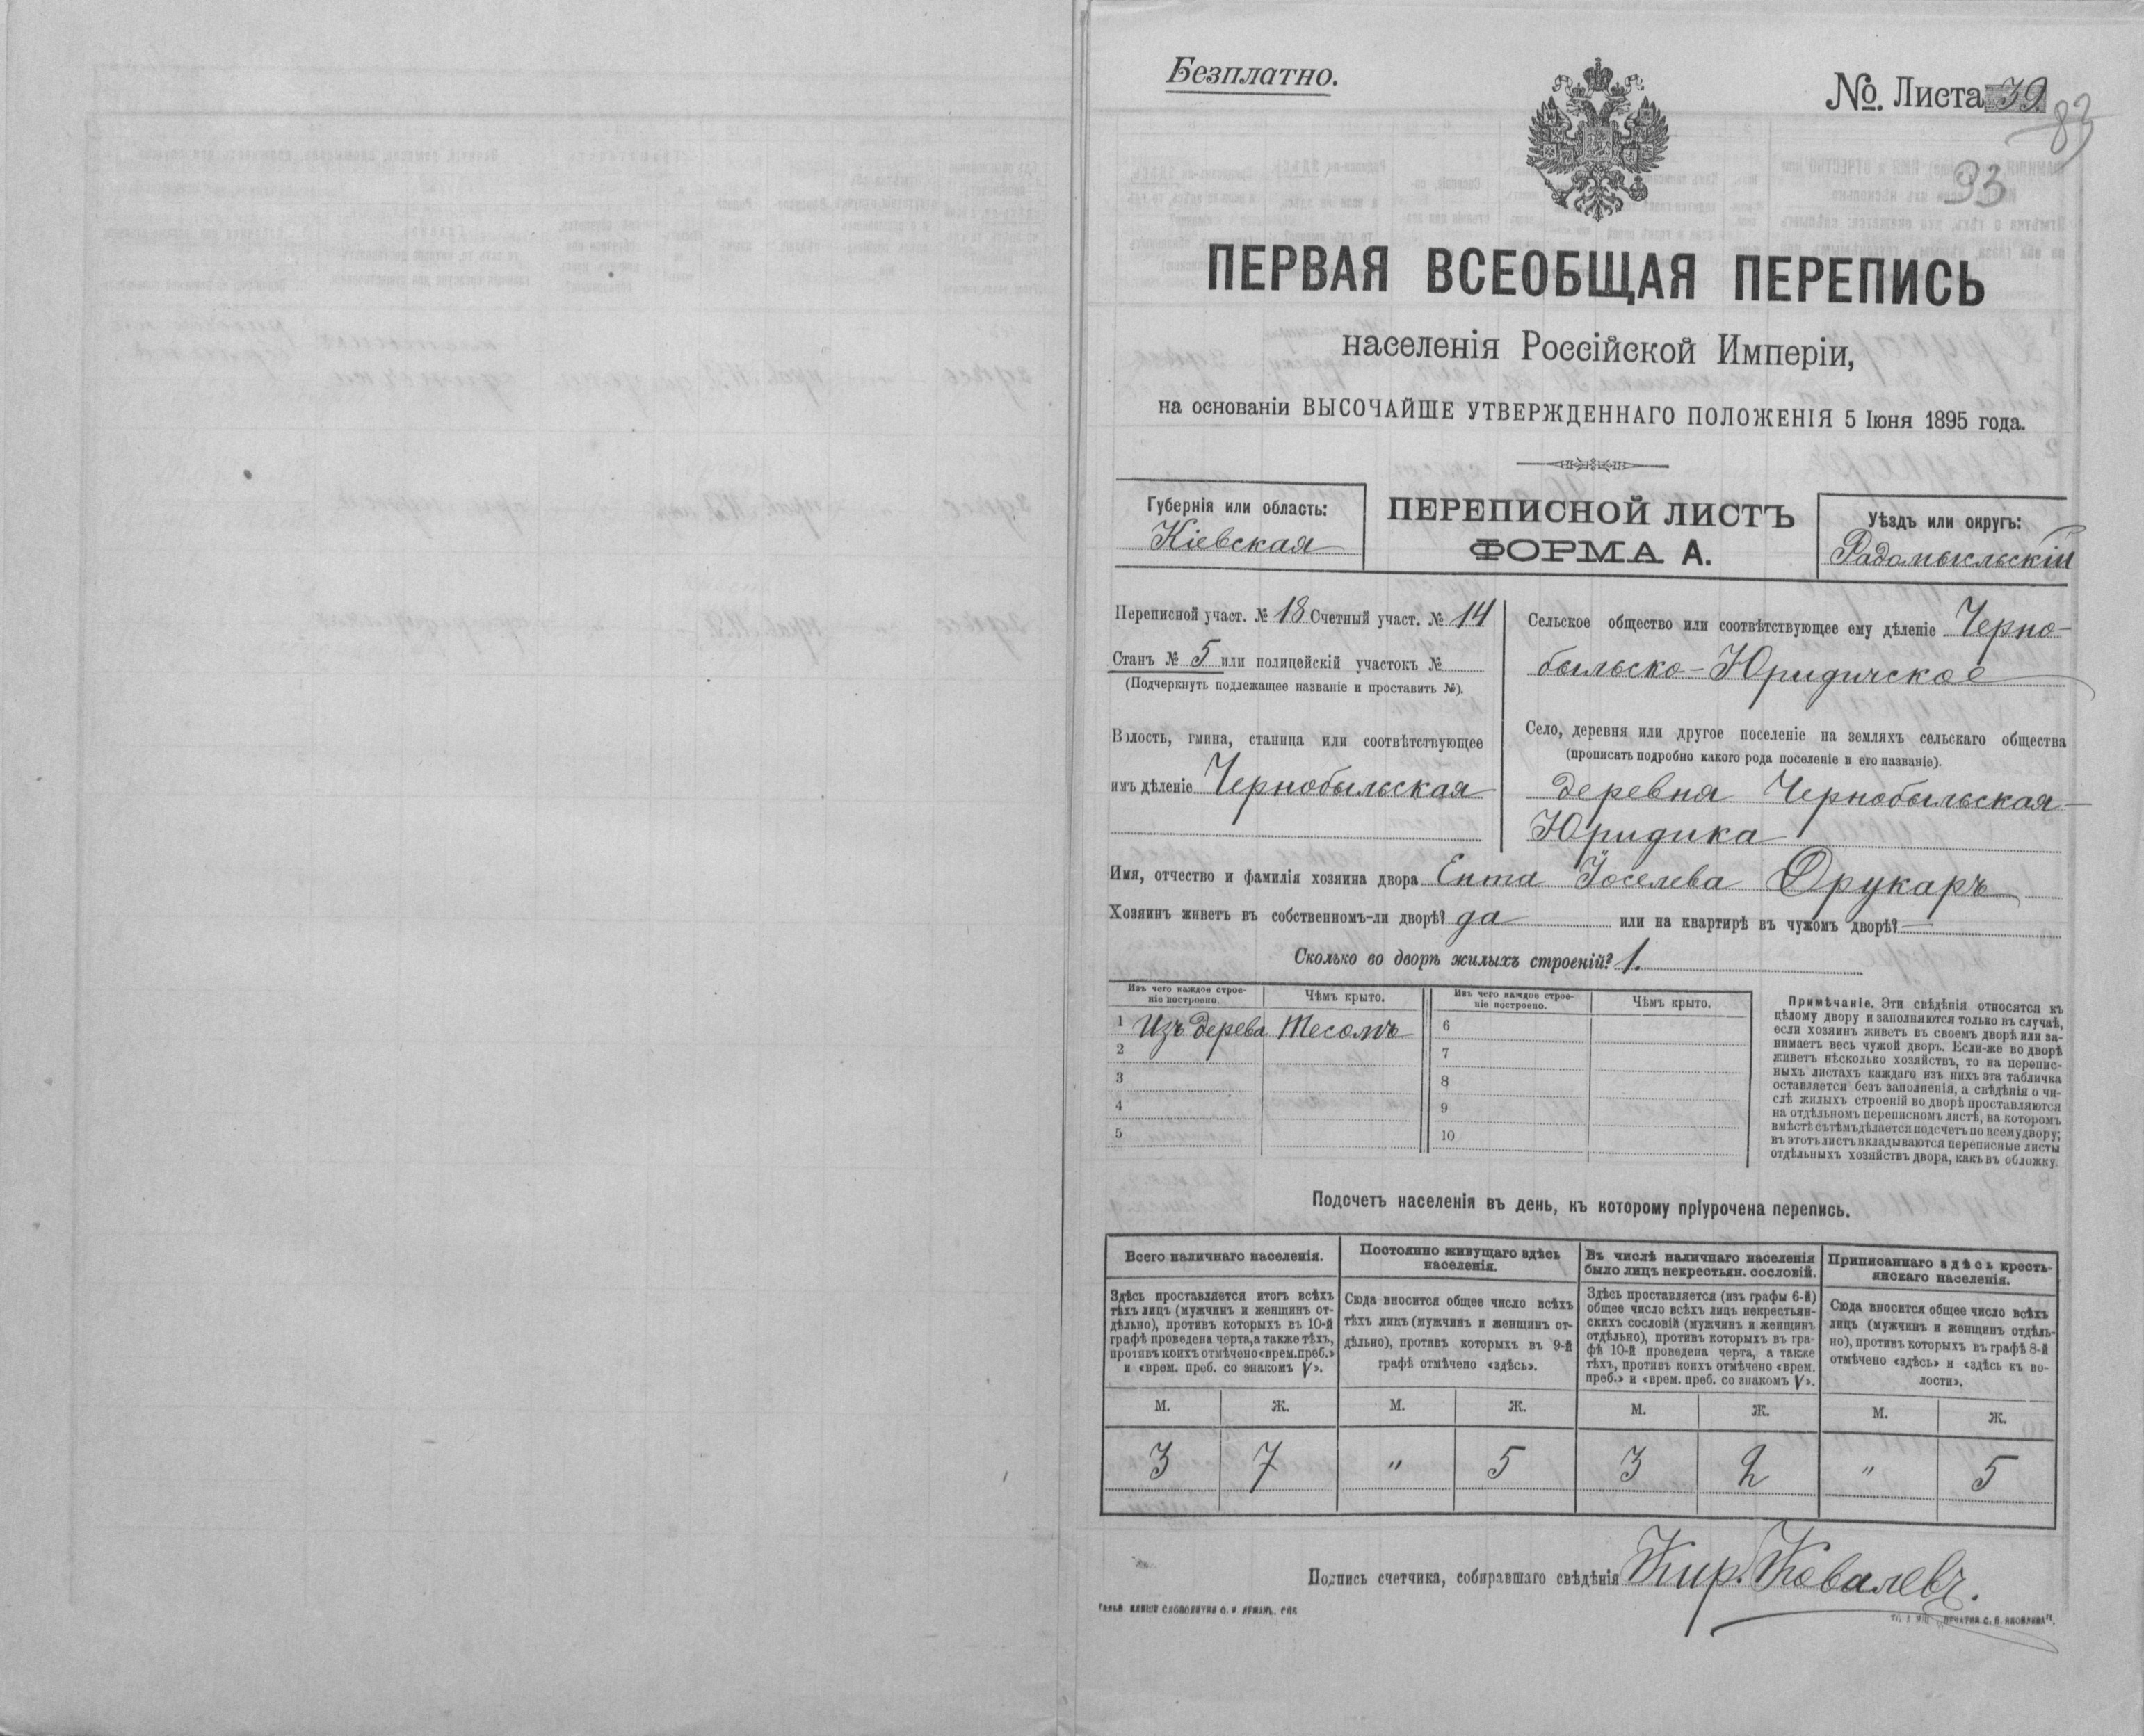 Безплатно.
№ Листа 39
83
93
ПЕРВАЯ ВСЕОБЩАЯ ПЕРЕПИСЬ
населенія Россійской Имперіи,
на основаніи ВЫСОЧАЙШЕ УТВЕРЖДЕННАГО ПОЛОЖЕНІЯ 5 Іюня 1895 года.
Губернія или область:
Кіевская
ПЕРЕПИСНОЙ ЛИСТЪ
ФОРМА А.
Уѣздъ или округъ:
Радомысльскій
Переписной участ. № 18 Счетный участ. № 14
Станъ № 5 или полицейскій участокъ №
(Подчеркнуть подлежащее названіе и проставить №).
Волость, гмина, станица или соотвѣтствующее
имъ дѣленіе Чернобыльская
Сельское общество или соотвѣтствующее ему дѣленіе Черно-
быльско-Юридичское
Село, деревня или другое поселеніе на земляхъ сельскаго общества
(прописать подробно какого рода поселеніе и его названіе).
деревня Чернобыльская-
Юридика
Имя, отчество и фамилія хозяина двора Ента Іоселева Друкаръ
Хозяинъ живетъ въ собственномъ-ли дворѣ? да или на квартирѣ въ чужомъ дворѣ? —
Сколько во дворѣ жилыхъ строеній? 1.
Изъ чего каждое строе-
ніе построено.
Чѣмъ крыто.
Изъ чего каждое строе-
ніе построено.
Чѣмъ крыто.
1 Изъ дерева Тесомъ 6
2 7
3 8
4 9
5 10
Примѣчаніе. Эти свѣдѣнія относятся къ
цѣлому двору и заполняются только въ случаѣ,
если хозяинъ живетъ въ своемъ дворѣ или за-
нимаетъ весь чужой дворъ. Если-же во дворѣ
живетъ нѣсколько хозяйствъ, то на перепис-
ныхъ листахъ каждаго изъ нихъ эта табличка
оставляется безъ заполненія, а свѣдѣнія о чи-
слѣ жилыхъ строеній во дворѣ проставляются
на отдѣльномъ переписномъ листѣ, на которомъ
вмѣстѣ съ тѣмъ дѣлается подсчетъ по всему двору;
въ этотъ листъ вкладываются переписные листы
отдѣльныхъ хозяйствъ двора, какъ въ обложку.
Подсчетъ населенія въ день, къ которому пріурочена перепись.
Всего наличнаго населенія.
Постоянно живущаго здѣсь
населенія.
Въ числѣ наличнаго населенія
было лицъ некрестьян. сословій.
Приписаннаго здѣсь кресть-
янскаго населенія.
Здѣсь проставляется итогъ всѣхъ
тѣхъ лицъ (мужчинъ и женщинъ от-
дѣльно), противъ которыхъ въ 10-й
графѣ проведена черта, а также тѣхъ,
противъ коихъ отмѣчено «врем. преб.»
и «врем. преб. со знакомъ V».
Сюда вносится общее число всѣхъ
тѣхъ лицъ (мужчинъ и женщинъ от-
дѣльно), противъ которыхъ въ 9-й
графѣ отмѣчено «здѣсь».
Здѣсь проставляется (изъ графы 6-й)
общее число всѣхъ лицъ некрестьян-
скихъ сословій (мужчинъ и женщинъ
отдѣльно), противъ которыхъ въ гра-
фѣ 10-й проведена черта, а также
тѣхъ, противъ коихъ отмѣчено «врем.
преб.» и «врем. преб. со знакомъ V».
Сюда вносится общее число всѣхъ
лицъ (мужчинъ и женщинъ отдѣль-
но), противъ которыхъ въ графѣ 8-й
отмѣчено «здѣсь» и «здѣсь къ во-
лости».
М. Ж. М. Ж. М. Ж. М. Ж.
3 7 " 5 3 2 " 5
Подпись счетчика, собиравшаго свѣдѣнія Кир. Ковалевъ.